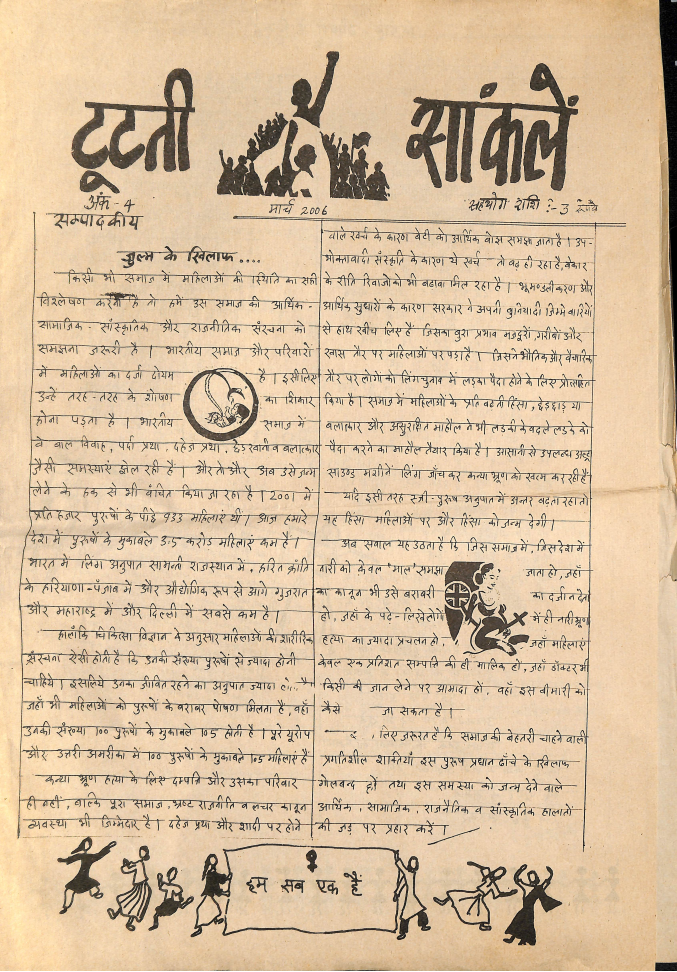 टूटती सांकलें
अंक - 4
मार्च 2006
सहयोग राशि :- 3 रुपये
सम्पादकीय
जुल्म के खिलाफ....
किसी भी समाज में महिलाओं की स्थिति का सही
विश्लेषण करना है तो हमें उस समाज की आर्थिक-
सामाजिक - सांस्कृतिक और राजनीतिक संरचना को
समझना जरूरी है । भारतीय समाज और परिवारों
में महिलाओं का दर्जा दोयम है । इसीलिए
उन्हें तरह-तरह के शोषण का शिकार
होना पड़ता है । भारतीय समाज में
वे बाल विवाह, पर्दा प्रथा, दहेज प्रथा, छेड़खानी व बलात्कार
जैसी समस्याएं झेल रही हैं । और तो और अब उसे जन्म
लेने के हक से भी वंचित किया जा रहा है । 2001 में
प्रति हजार पुरुषों के पीछे 933 महिलाएं थीं । आज हमारे
देश में पुरुषों के मुकाबले 3.5 करोड़ महिलाएं कम हैं ।
भारत में लिंग अनुपात सामंती राजस्थान में, हरित क्रांति
के हरियाणा-पंजाब में और औद्योगिक रूप से आगे गुजरात
और महाराष्ट्र में और दिल्ली में सबसे कम है ।
हालांकि चिकित्सा विज्ञान के अनुसार महिलाओं की शारीरिक
संरचना ऐसी होती है कि उनकी संख्या पुरुषों से ज्यादा होनी
चाहिये । इसलिये उनका जीवित रहने का अनुपात ज्यादा
जहाँ भी महिलाओं को पुरुषों के बराबर पोषण मिलता है, वहाँ
उनकी संख्या 100 पुरुषों के मुकाबले 105 होती है । पूरे यूरोप
और उत्तरी अमरीका में 100 पुरुषों के मुकाबले 105 महिलाएं हैं
कन्या भ्रूण हत्या के लिए दम्पति और उसका परिवार
ही नहीं, बल्कि पूरा समाज, भ्रष्ट राजनीति व लचर कानून
व्यवस्था भी जिम्मेदार है । दहेज प्रथा और शादी पर होने
वाले खर्च के कारण बेटी को आर्थिक बोझ समझा जाता है । उप-
भोक्तावादी संस्कृति के कारण ये खर्च तो बढ़ ही रहा है, बेकार
के रीति रिवाजों को भी बढावा मिल रहा है । भूमण्डलीकरण और
आर्थिक सुधारों के कारण सरकार ने अपनी बुनियादी जिम्मेवारियों
से हाथ खींच लिए हैं जिसका बुरा प्रभाव मजदूरों, गरीबों और
खास तौर पर महिलाओं पर पड़ा है । जिसने भौतिक और वैचारिक
तौर पर लोगों को लिंग चुनाव में लड़का पैदा होने के लिए प्रोत्साहित
किया है । समाज में महिलाओं के प्रति बढती हिंसा, छेड़छाड़ या
बलात्कार और असुरक्षित माहौल ने भी लडकी के बदले लडके को
पैदा करने का माहौल तैयार किया है । आसानी से उपलब्ध अल्ट्रा
साउण्ड मशीनें लिंग जाँच कर कन्या भ्रूण को खत्म कर रही हैं
यदि इसी तरह स्त्री-पुरुष अनुपात में अन्तर बढ़ता रहा तो
यह हिंसा महिलाओं पर और हिंसा को जन्म देगी ।
अब सवाल यह उठता है कि जिस समाज में, जिस देश में
नारी को केवल 'माल' समझा जाता हो, जहाँ
का कानून भी उसे बराबरी का दर्जा न देता
हो, जहाँ के पढ़े-लिखे लोगों में ही नारी भ्रूण
हत्या का ज्यादा प्रचलन हो, जहाँ महिलाएं
केवल एक प्रतिशत सम्पति की ही मालिक हों, जहाँ डॉक्टर भी
किसी की जान लेने पर आमादा हों, वहाँ इस बीमारी को
कैसे जा सकता है ।
लिए जरूरत है कि समाज की बेहतरी चाहने वाली
प्रगतिशील शक्तियाँ इस पुरुष प्रधान ढाँचे के खिलाफ
गोलबन्द हों तथा इस समस्या को जन्म देने वाले
आर्थिक, सामाजिक, राजनैतिक व सांस्कृतिक हालातों
की जड़ पर प्रहार करें ।
हम सब एक हैं